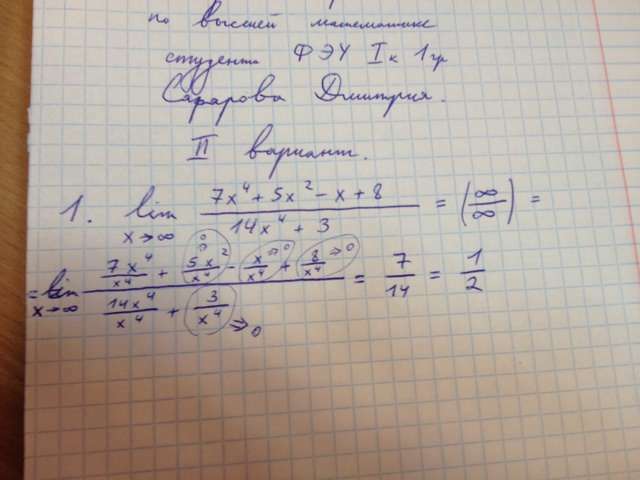 по высшей математике
студента ФЭУ I к 1 гр
Сафарова Дмитрия.
II вариант.
1. lim x→∞ (7x⁴ + 5x² − x + 8)/(14x⁴ + 3) = (∞/∞) =
= lim x→∞ (7x⁴/x⁴ + 5x²/x⁴ →0 − x/x⁴ →0 + 8/x⁴ →0)/(14x⁴/x⁴ + 3/x⁴ →0) = 7/14 = 1/2